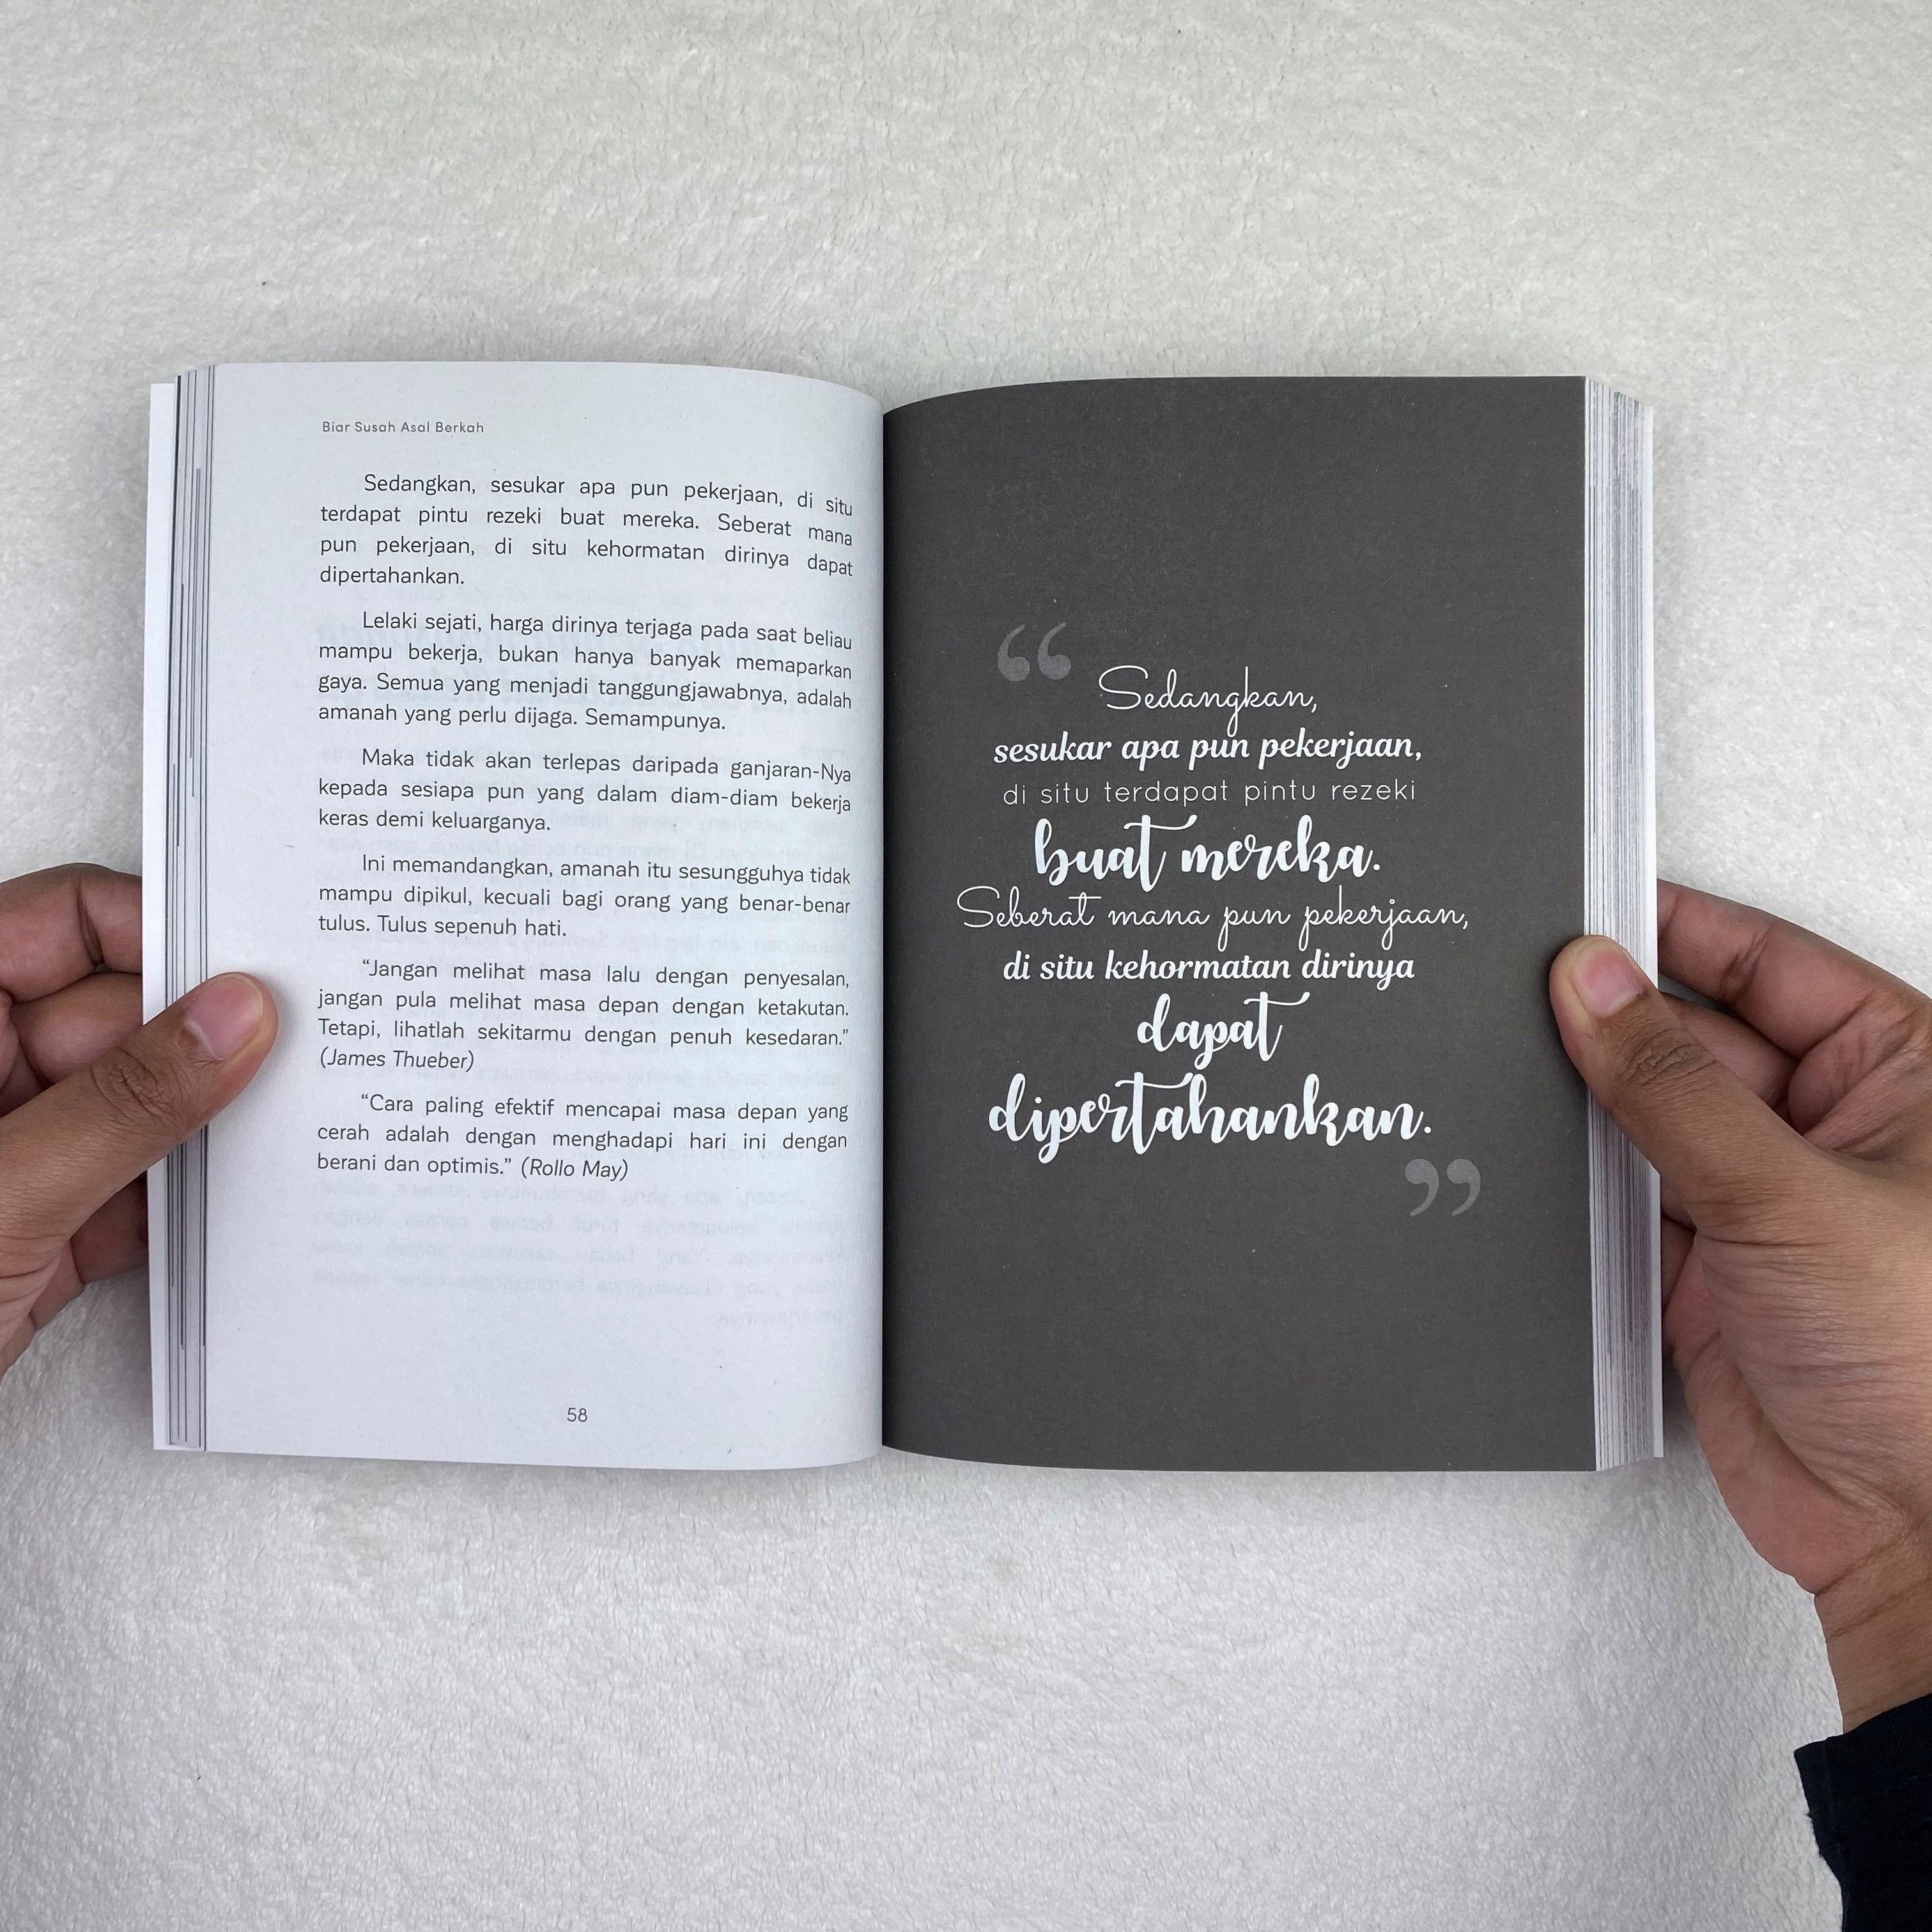 Biar Susah Asal Berkah
Sedangkan, sesukar apa pun pekerjaan, di situ
terdapat pintu rezeki buat mereka. Seberat mana
pun pekerjaan, di situ kehormatan dirinya dapat
dipertahankan.
Lelaki sejati, harga dirinya terjaga pada saat beliau
mampu bekerja, bukan hanya banyak memaparkan
gaya. Semua yang menjadi tanggungjawabnya, adalah
amanah yang perlu dijaga. Semampunya.
Maka tidak akan terlepas daripada ganjaran-Nya
kepada sesiapa pun yang dalam diam-diam bekerja
keras demi keluarganya.
Ini memandangkan, amanah itu sesungguhya tidak
mampu dipikul, kecuali bagi orang yang benar-benar
tulus. Tulus sepenuh hati.
“Jangan melihat masa lalu dengan penyesalan,
jangan pula melihat masa depan dengan ketakutan.
Tetapi, lihatlah sekitarmu dengan penuh kesedaran.”
(James Thueber)
“Cara paling efektif mencapai masa depan yang
cerah adalah dengan menghadapi hari ini dengan
berani dan optimis.” (Rollo May)
58
“Sedangkan,
sesukar apa pun pekerjaan,
di situ terdapat pintu rezeki
buat mereka.
Seberat mana pun pekerjaan,
di situ kehormatan dirinya
dapat
dipertahankan.”